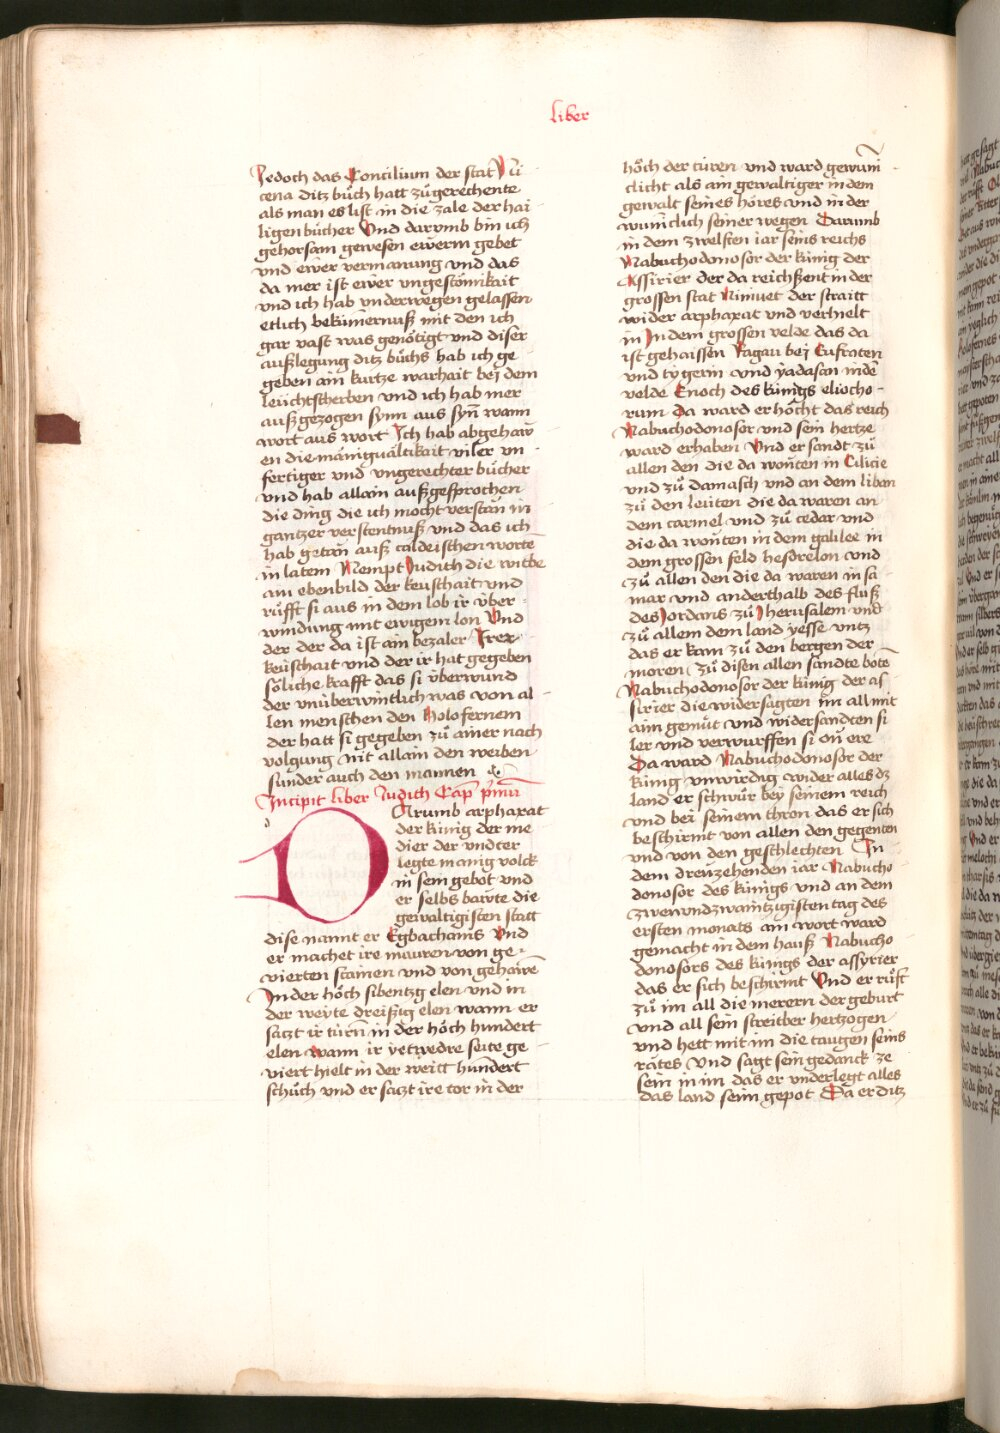 liber
Jedoch das Concilium der stat Ni
cena ditz bůch hatt zůgerechente
als man es list in die zale der hai
ligen bücher Vnd darvmb bin ich
gehorsam gewesen ewerm gebet
vnd ewer vermanung vnd das
da mer ist ewer vngestömikait
vnd ich hab vnderwegen gelassen
etlich bekümernuß mit den ich
gar vast was genötigt vnd diser
außlegung ditz bůchs hab ich ge
geben ain kurtze warhait bej dem
leüchtscherben vnd ich hab mer
außgezogen synn aus syn̄ wann
wort aus wort Ich hab abgehaw
en die mänigualtikait viler vn
fertiger vnd vngerechter bücher
vnd hab allain außgesprochen
die ding die ich mocht verstan in
gantzer verstentnuß vnd das ich
hab getan auß caldeischen worte
in latein Nempt Judith die witbe
ain ebenbild der keuschait vnd
rüfft si aus in dem lob ir über
windung mit ewigem lon Vnd
der der da ist ain bezaler Irer
keüschait vnd der ir hat gegeben
söliche krafft das si überwund
der vnüberwintlich was von al
len menschen den Holofernem
der hatt si gegeben zů ainer nach
volgung nit allain den weiben
sunder auch den mannen
Incipit liber Judith Cap̄ p̄imū
DArumb arphaxat
der künig der me
dier der vndter
legte manig volck
in sein gebot vnd
er selbs bawte die
gewaltigisten statt
dise nannt er Egbachanis Vnd
er machet ire mauren von ge
vierten stainen vnd von gehaurē
In der höch sibentzg elen vnd in
der weyte dreißig elen wann er
satzt ir türn in der höch hundert
elen wann ir yetwedre seite ge
viert hielt in der weitt hundert
schüch vnd er satzt ire tor in der
höch der türen vnd ward gewun
clicht als ain gewaltiger in dem
gewalt seines höres vnd in der
wunclich seiner wegen Darumb
in dem zwelften iar seins reichs
Nabuchodonosor der künig der
Assirier der da reichßent in der
grossen stat Niniuet der straitt
wider arphaxat vnd verhielt
in In dem grossen velde das da
ist gehaissen Ragau bej Eufraten
vnd tygerin vnd yadason in dē
velde Enoch des künigs eliocho
rum Da ward erhöcht das reich
Nabuchodonosor vnd sein hertze
ward erhaben Vnd er sandt zů
allen den die da wonten in Cilicie
vnd zů damasch vnd an dem liban
zů den leüten die da waren an
dem carmel vnd zů cedar vnd
die da wonten in dem galilee in
dem grossen feld hesdrelon vnd
zů allen den die da waren in sa
mar vnd anderthalb des fluß
des Jordans zů Jherusalem vnd
zů allem dem land yesse vntz
das er kam zů den bergen der
moren zů disen allen sandte botē
Nabuchodonosor der künig der as
sirier die widersagten im all mit
aim gemüt vnd widersandten si
ler vnd verwurffen si on ere
Da ward Nabuchodonosor der
künig vnwirdig wider alles dz
land er schwůr bey seinem reich
vnd bei seinem thron das er sich
beschirmt von allen den gegenten
vnd von den geschlechten In
dem dreuzehenden iar Nabucho
donosor des künigs vnd an dem
zwenvndzwaintzigisten tag des
ersten monats ain wort ward
gemacht in dem hauß Nabucho
donosors des künigs der assyrier
das er sich beschirmt Vnd er rüft
zů im all die merern der geburt
vnd all sein streitber hertzogen
vnd hett mit im die taugen seins
rates Vnd sagt sein gedanck ze
sein in im das er vnderlegt alles
das land seim gepot Da er ditz